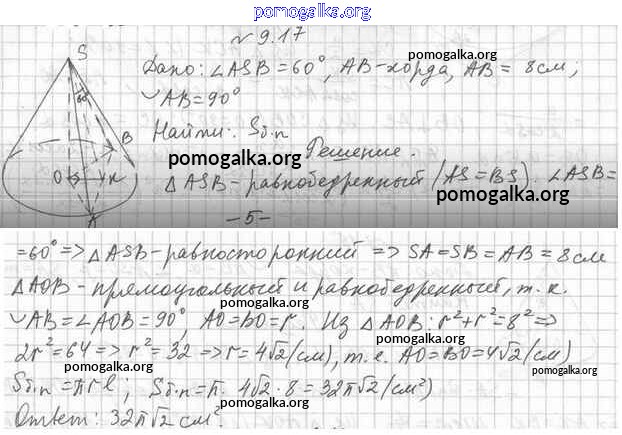 pomogalka.org
№ 9.17
pomogalka.org
Дано: ∠ASB=60°, AB-хорда, AB = 8см;
◡AB=90°
Найти: Sб.п
pomogalka.org
Решение.
pomogalka.org
△ASB-равнобедренный (AS=BS). ∠ASB=
-5-
=60° => △ASB-равносторонний => SA=SB=AB=8см
pomogalka.org
△AOB-прямоугольный и равнобедренный, т.к.
pomogalka.org
◡AB=∠AOB=90°, AO=BO=r. Из △AOB: r²+r²=8² =>
pomogalka.org
2r²=64 => r²=32 => r=4√2(см), т.е. AO=BO=4√2(см)
pomogalka.org
pomogalka.org
Sб.п=πrl; Sб.п=π·4√2·8=32π√2(см²)
pomogalka.org
Ответ: 32π√2 см².
pomogalka.org
S
60°
B
O
K
A